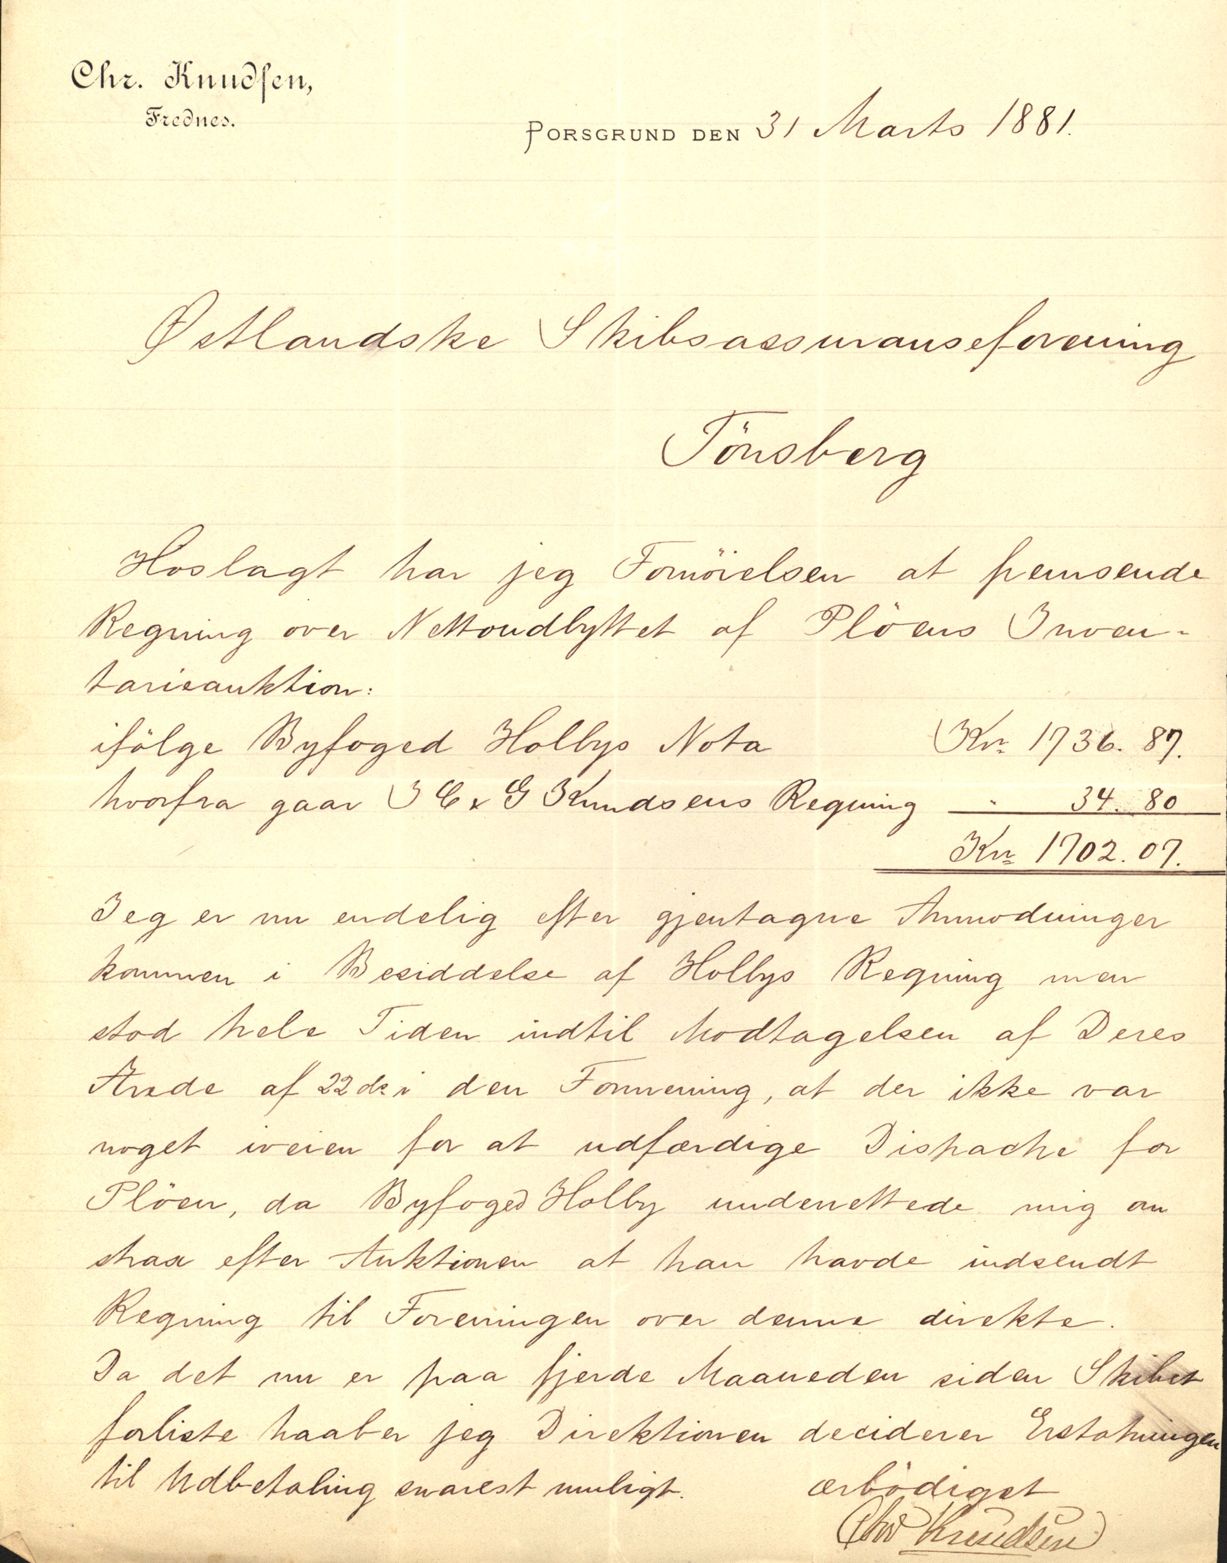 Chr. Knudsen,
Frednes.
PORSGRUND DEN 31 Marts 1881.
Østlandske Skibsassuranseforening
Tönsberg
Hoslagt har jeg Fornöielsen at fremsende
Regning over Nettoudbyttet af Plöens Inven-
tarieauktion:
ifölge Byfoged Holbys Nota Kr. 1736. 87.
hvorfra gaar J C & G Knudsens Regning " 34. 80
Kr. 1702. 07.
Jeg er nu endelig efter gjentagne Anmodninger
kommen i Besiddelse af Hollbys Regning men
stod hele Tiden indtil Modtagelsen af Deres
Ærede af 22 ds i den Formening, at der ikke var
noget iveien for at udfærdige Dispache for
Plöen, da Byfoged Holby underrettede mig om
strax efter Auktionen at han havde indsendt
Regning til Foreningen over denne direkte.
Da det nu er paa fjerde Maaneden siden Skibet
forliste haaber jeg Direktionen deciderer Erstatningen
til Udbetaling snarest muligt. ærbödigst
Chr Knudsen